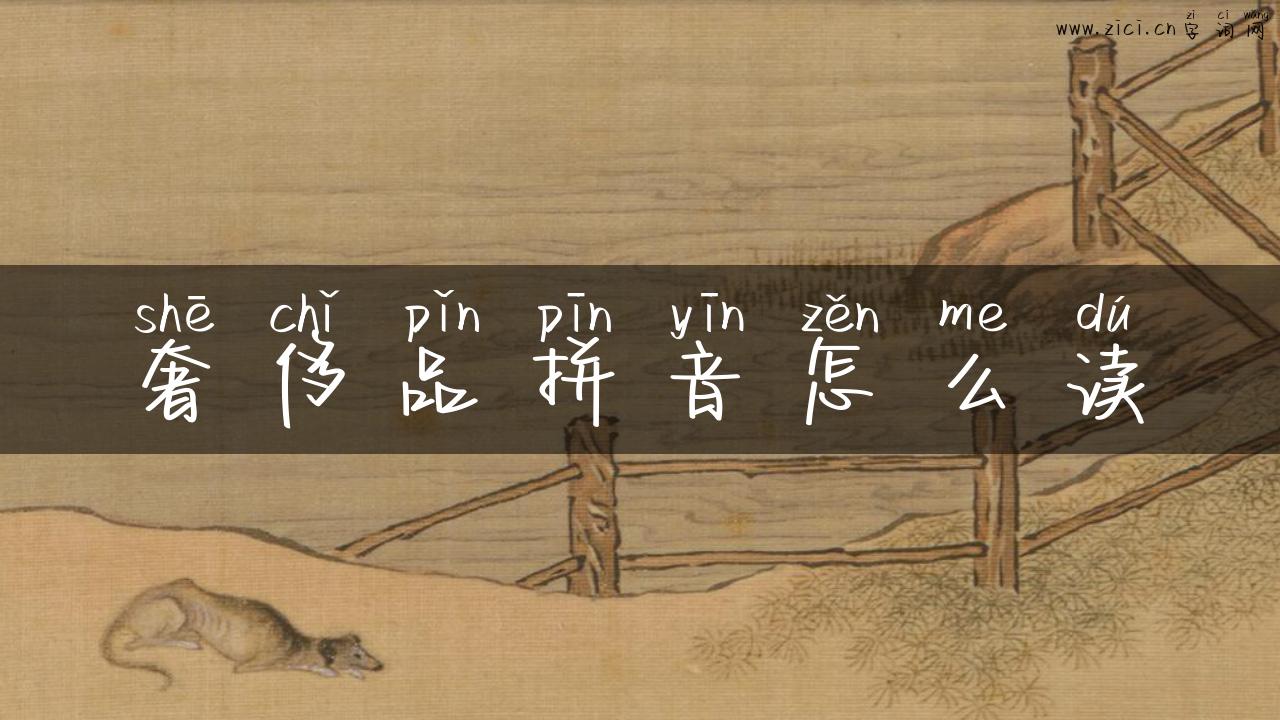 zi ci wang
www.zici.cn 字词网
shē chǐ pǐn pīn yīn zěn me dú
奢侈品拼音怎么读